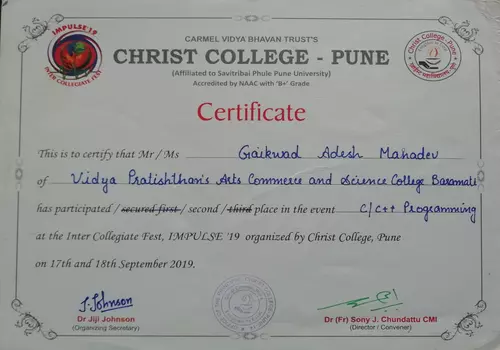 IMPULSE'19
INTER COLLEGIATE FEST
CARMEL VIDYA BHAVAN TRUST'S
CHRIST COLLEGE - PUNE
(Affiliated to Savitribai Phule Pune University)
Accredited by NAAC with 'B+' Grade
Christ College - Pune
Certificate
This is to certify that Mr / Ms Gaikwad Adesh Mahadev
of Vidya Pratishthan's Arts Commerce and Science College Baramati
has participated / secured first / second / third place in the event C/C++ Programming
at the Inter Collegiate Fest, IMPULSE '19 organized by Christ College, Pune
on 17th and 18th September 2019.
J. Johnson
Dr Jiji Johnson
(Organizing Secretary)
Dr (Fr) Sony J. Chundattu CMI
(Director / Convener)